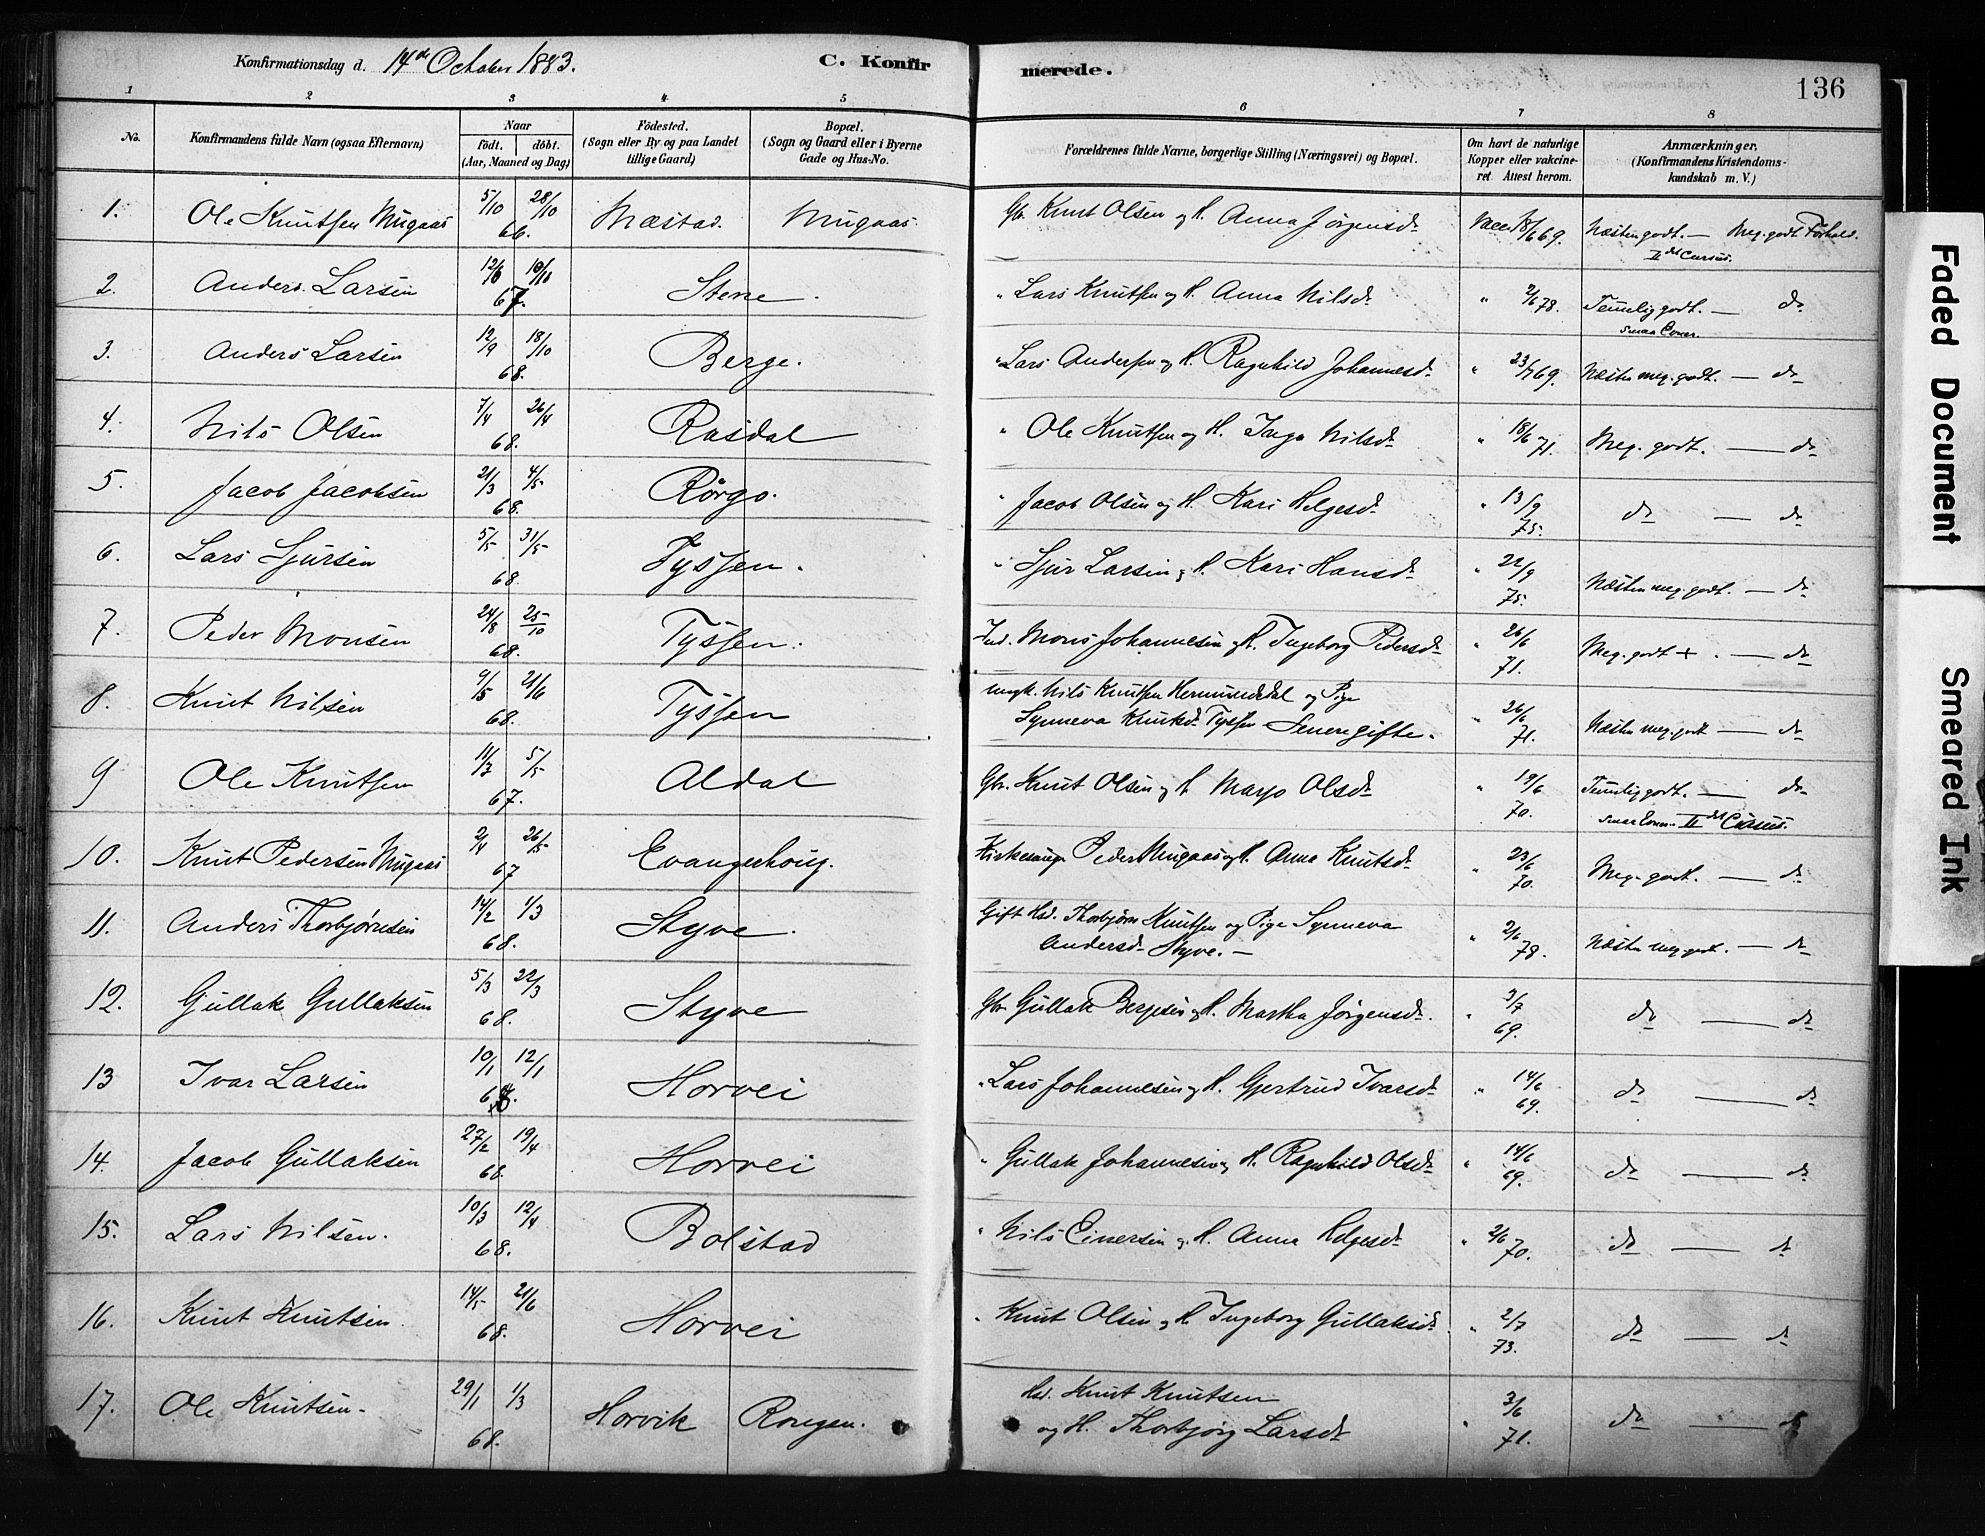 Konfirmationsdag d. 14de October 1883. C. Konfir
merede. 136
1 2 3 4 5 6 7 8
No. Konfirmandens fulde Navn (ogsaa Efternavn) Naar födt. döbt. (Aar, Maaned og Dag) Födested. (Sogn eller By og paa Landet tillige Gaard) Bopæl. (Sogn og Gaard eller i Byerne Gade og Hus-No.
Forældrenes fulde Navne, borgerlige Stilling (Næringsvei) og Bopæl. Om havt de naturlige Kopper eller vakcineret. Attest herom. Anmærkninger. (Konfirmandens Kristendomskundskab m. V.)
1. Ole Knutsen Mugaas 5/10 28/10 66. Mæstad. Mugaas. Gbr. Knut Olsen og H. Anna Jørgensdr. Vacc. 18/6 69. Næsten godt. — Meg. godt Forhold. II det Cursus.
2. Anders Larsen 67. Stene. " Lars Knutsen og H. Anna Nilsdr. " 2/6 78. Temmelig godt. — do
3. Anders Larsen 12/9 18/10 68. Berge. " Lars Andersen og H. Ragnhild Johannesdr. " 23/7 69. Næsten meg. godt. — do
4. Nils Olsen 7/4 26/4 68. Rasdal " Ole Knutsen og H. Inga Nilsdr. " 18/6 71. Meg. godt. — do
5. Jacob Jacobsen 21/3 4/5 68. Rörgo. " Jacob Olsen og H. Kari Helgesdr. " 13/9 75. do — do
6. Lars Sjursen 5/5 31/5 68. Tyssen. " Sjur Larsen og H. Kari Hansdr. " 22/9 75. Næsten meg. godt. — do
7. Peder Monsen 24/8 25/10 68. Tyssen. Ind. Mons Johannesen og H. Ingeborg Pedersdr. " 26/6 71. Meg. godt +. — do
8. Knut Nilsen 9/5 21/6 68. Tyssen Ungk. Nils Knutsen Hermundsdal og Pige
Synneva Knutsdr. Tyssen Senere gifte. " 26/6 71. Næsten meg. godt — do
9 Ole Knutsen 11/3 5/5 67. Aldal Gbr. Knut Olsen og H. Marjo Olsdr. " 19/6 70. Temmelig godt. — do II det Cursus.
10. Knut Pedersen Mugaas 2/4 26/5 67 Evangerhoug. Kirkesanger Peder Mugaas og H. Anna Knutsdr. " 23/6 70. Meg. godt. — do
11. Anders Thorbjørnsen 14/2 1/3 68. Styve. Gift Hd. Thorbjørn Knutsen og Pige Synneva
Andersdr. Styve. — " 2/6 78. Næsten meg. godt. — do
12. Gullak Gullaksen 5/3 22/3 68. Styve Gbr. Gullak Bergesen og H. Martha Jørgensdr. " 3/7 69. do — do
13 Ivar Larsen 10/1 12/1 68. Horvei " Lars Johannesen og H. Gjertrud Ivarsdr. " 14/6 69. do — do
14. Jacob Gullaksen 27/2 19/4 68. Horvei " Gullak Johannesen og H. Ragnhild Olsdr. " 14/6 69. do — do
15. Lars Nilsen. 10/3 12/4 68. Bolstad " Nils Einersen og H. Anna Helgesdr. " 2/6 70. do — do
16. Knut Knutsen 14/5 21/6 68. Horvei " Knut Olsen og H. Ingeborg Gullaksdr. " 2/7 73. do — do
17. Ole Knutsen. 29/1 1/3 68. Horvik Rongen. Hd. Knut Knutsen
og H. Thorbjørg Larsdr. " 3/6 71. do — do
Faded Document
Smeared Ink